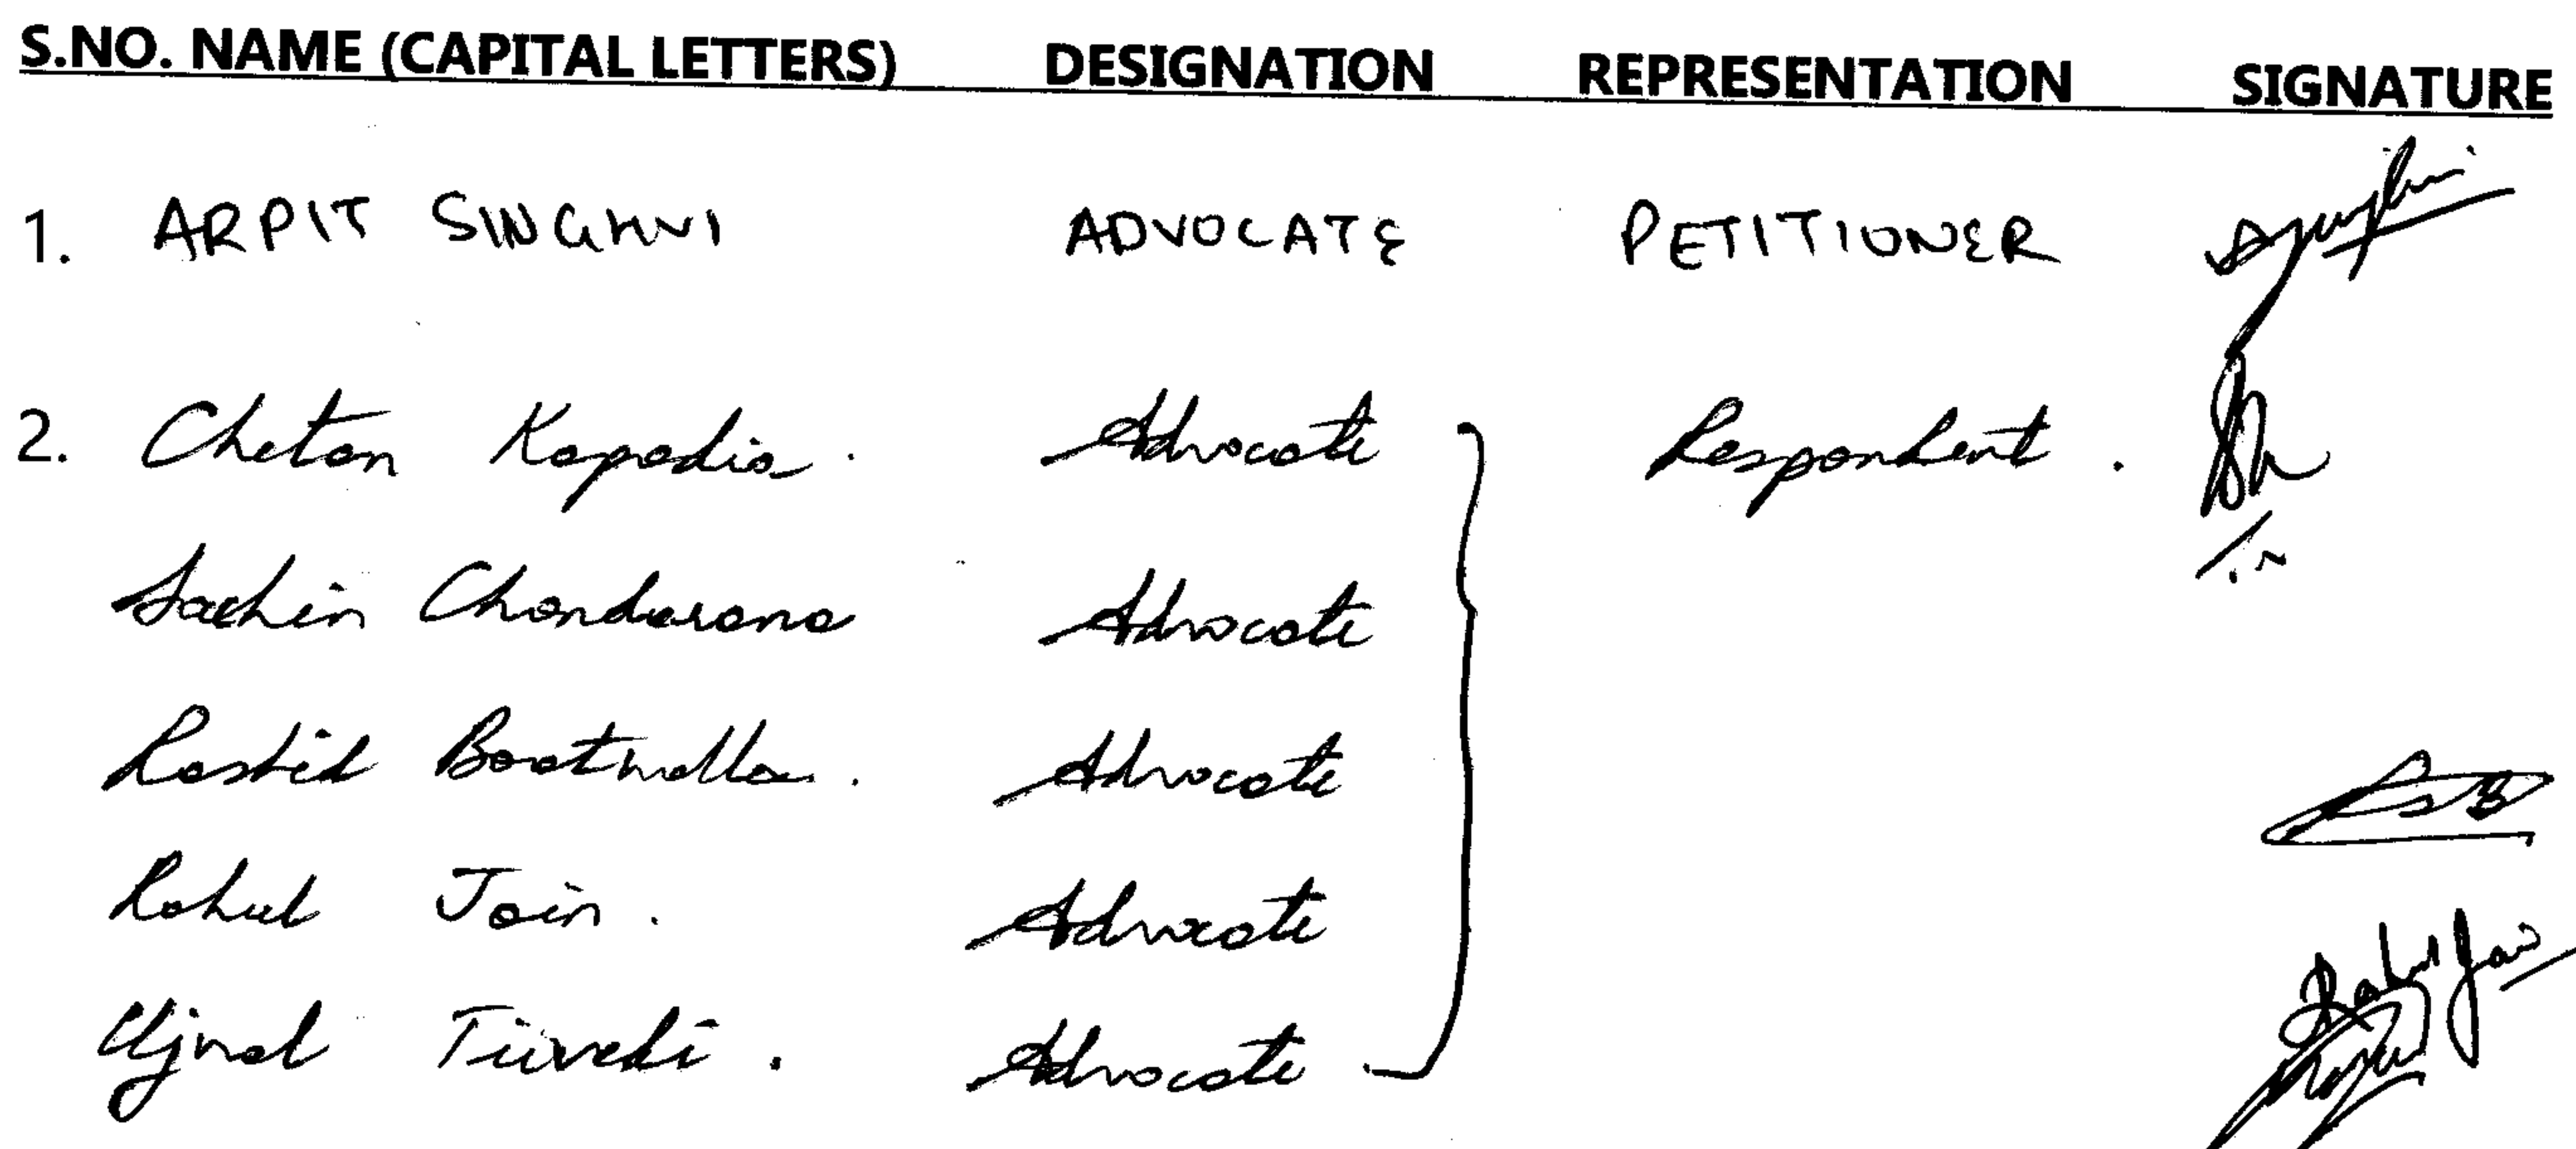 S.NO. NAME (CAPITAL LETTERS) DESIGNATION REPRESENTATION SIGNATURE
1. ARPIT SINGHVI ADVOCATE PETITIONER
2. Chetan Kapadia. Advocate Respondent.
Sachin Chandarana Advocate
Rashid Boatwalla. Advocate
Rahul Jain. Advocate Rahul Jain
Ujwal Trivedi. Advocate